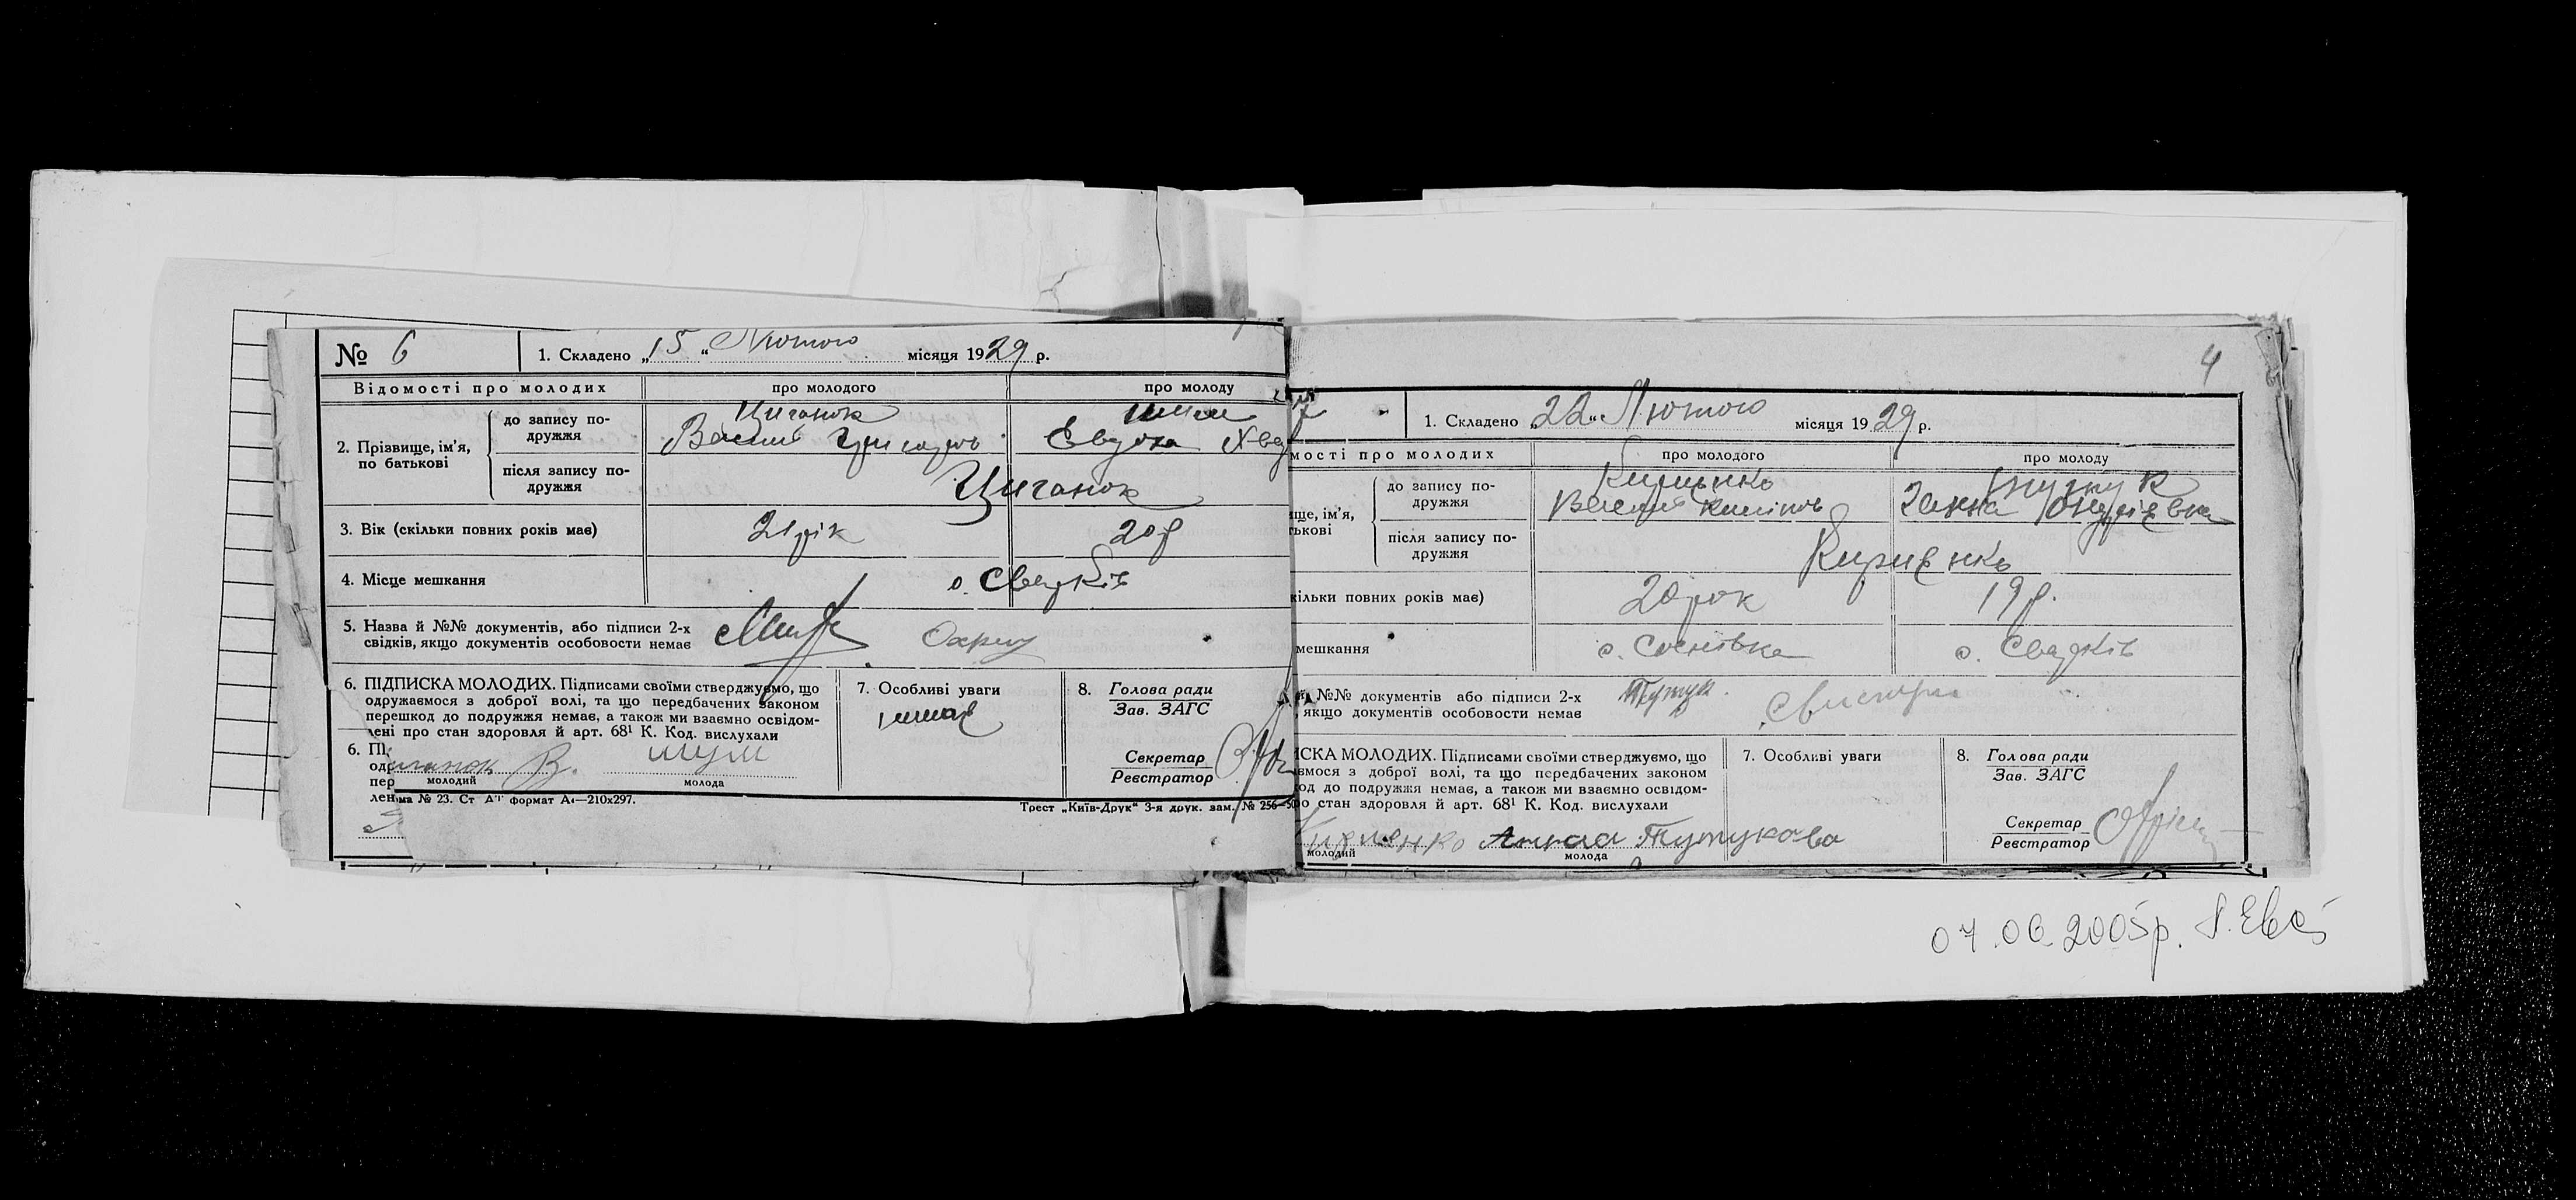 № 6
1. Складено „15“ Лютого місяця 1929 р.
Відомості про молодих
про молодого
про молоду
2. Прізвище, ім'я, по батькові
до запису по-
дружжя
Циганок
Василь Григоров.
Евдоха
після запису по-
дружжя
Циганок
3. Вік (скільки повних років має)
21 рік
20 р
4. Місце мешкання
с. Свидків
5. Назва й №№ документів, або підписи 2-х
свідків, якщо документів особовости немає
6. ПІДПИСКА МОЛОДИХ. Підписами своїми стверджуємо, що
одружаємося з доброї волі, та що передбачених законом
перешкод до подружжя немає, а також ми взаємно освідом-
лені про стан здоровля й арт. 68¹ К. Код. вислухали
6. ПІ
одр
пер
лен
иганок В.
молодий
молода
7. Особливі уваги
8. Голова ради
Зав. ЗАГС
Секретар
Реєстратор
ма № 23. Ст формат А₄—210х297.
Трест „Київ-Друк“ 3-я друк. зам. № 256—50
4
7
1. Складено „22“ Лютого місяця 1929 р.
мості про молодих
про молодого
про молоду
ище, ім'я,
тькові
до запису по-
дружжя
Кириенко
Василь
Ганна
після запису по-
дружжя
Кириенко
кільки повних років має)
20 рок
19 р.
мешкання
с. Соснівка
с. Свидків
№№ документів або підписи 2-х
, якщо документів особовости немає
Тутук.
ИСКА МОЛОДИХ. Підписами своїми стверджуємо, що
ємося з доброї волі, та що передбачених законом
од до подружжя немає, а також ми взаємно освідом-
о стан здоровля й арт. 68¹ К. Код. вислухали
Кириенко
Анна Тутукова
молодий
молода
7. Особливі уваги
8. Голова ради
Зав. ЗАГС
Секретар
Реєстратор
07.06.2005р.